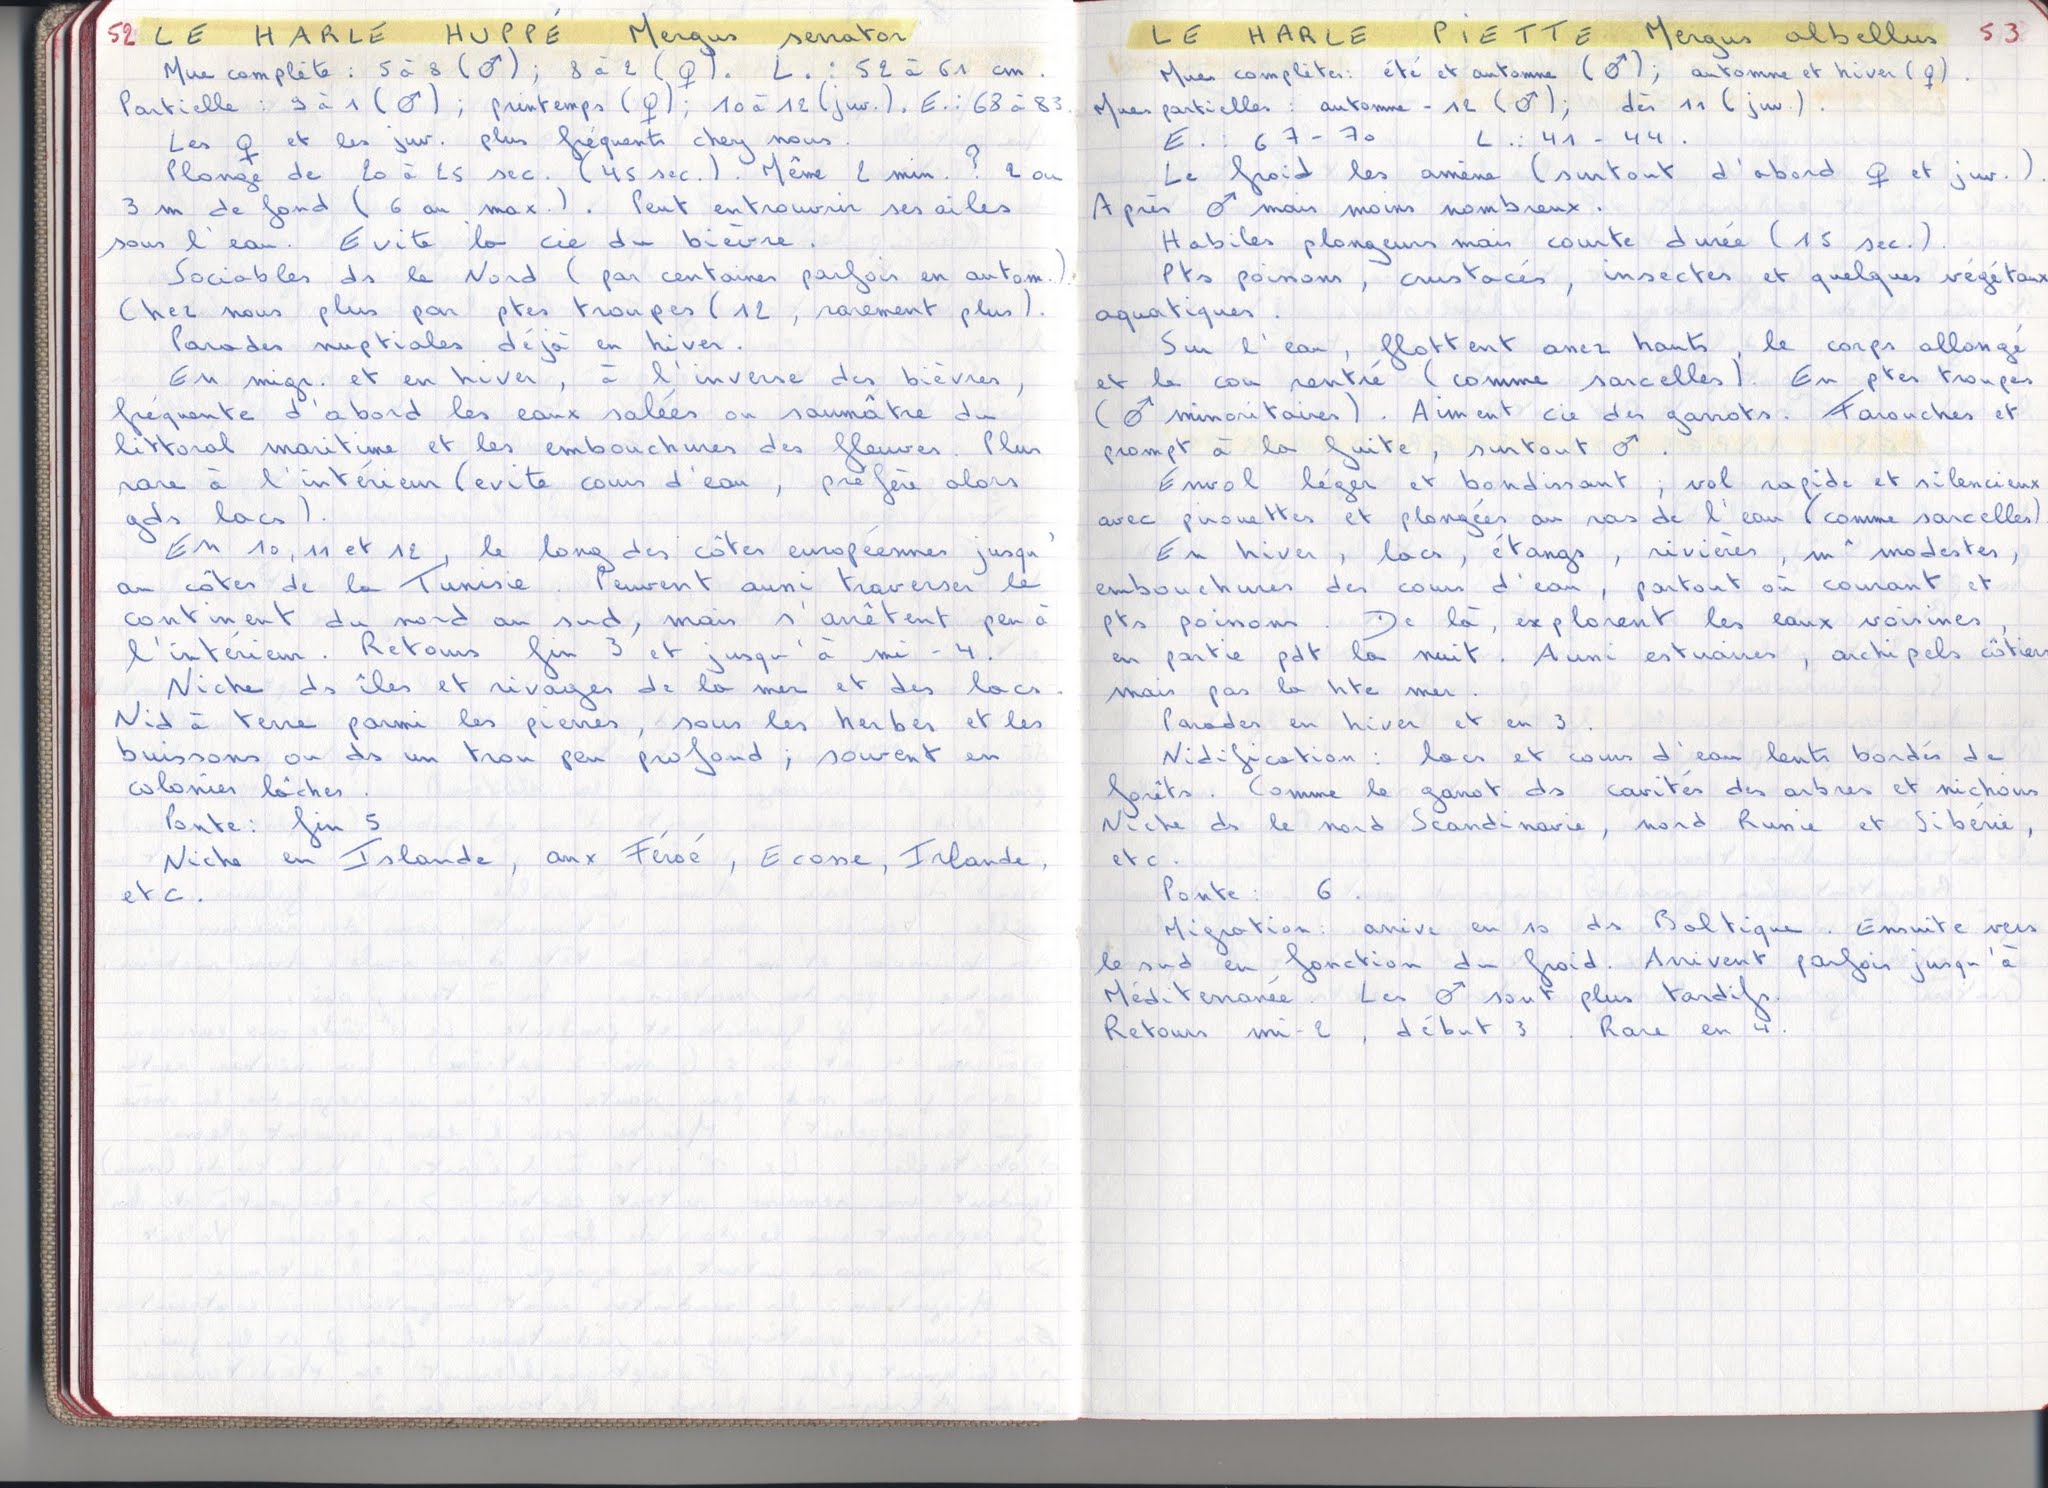 52 LE HARLE HUPPÉ Mergus serrator
Mue complète : 5 à 8 (♂) ; 8 à 2 (♀). L. : 52 à 61 cm.
Partielle : 9 à 1 (♂) ; printemps (♀) ; 10 à 12 (juv.). E. : 68 à 83.
Les ♀ et les juv. plus fréquents chez nous.
Plonge de 20 à 25 sec. (45 sec.). Même 2 min. ? 2 ou
3 m de fond (6 au max.). Peut entrouvrir ses ailes
sous l'eau. Evite la cie du bièvre.
Sociables ds le Nord (par centaines parfois en autom.).
Chez nous plus par ptes troupes (12, rarement plus).
Parades nuptiales déjà en hiver.
En migr. et en hiver, à l'inverse des bièvres,
fréquente d'abord les eaux salées ou saumâtre du
littoral maritime et les embouchures des fleuves. Plus
rare à l'intérieur (evite cours d'eau, préfère alors
gds lacs).
En 10, 11 et 12, le long des côtes européennes jusqu'
au côtes de la Tunisie. Peuvent aussi traverser le
continent du nord au sud, mais s'arrêtent peu à
l'intérieur. Retours fin 3 et jusqu'à mi-4.
Niche ds îles et rivages de la mer et des lacs.
Nid à terre parmi les pierres, sous les herbes et les
buissons ou ds un trou peu profond ; souvent en
colonies lâches.
Ponte : fin 5
Niche en Islande, aux Féroé, Ecosse, Irlande,
etc.
LE HARLE PIETTE Mergus albellus 53
Mues complètes : été et automne (♂) ; automne et hiver (♀).
Mues partielles : automne - 12 (♂) ; dès 11 (juv.).
E. : 67-70 L. : 41-44.
Le froid les amène (surtout d'abord ♀ et juv.).
Après ♂ mais moins nombreux.
Habiles plongeurs mais courte durée (15 sec.).
Pts poissons, crustacés, insectes et quelques végétaux
aquatiques.
Sur l'eau, flottent assez hauts, le corps allongé
et le cou rentré (comme sarcelles). En ptes troupes
(♂ minoritaires). Aiment cie des garrots. Farouches et
prompt à la fuite, surtout ♂.
Envol léger et bondissant ; vol rapide et silencieux
avec pirouettes et plongées au ras de l'eau (comme sarcelles)
En hiver, lacs, étangs, rivières, m^ modestes,
embouchures des cours d'eau, partout où courant et
pts poissons. De là, explorent les eaux voisines,
en partie pdt la nuit. Aussi estuaires, archipels côtiers
mais pas la hte mer.
Parades en hiver et en 3.
Nidification : lacs et cours d'eau lents bordés de
forêts. Comme le garrot ds cavités des arbres et nichoirs
Niche ds le nord Scandinavie, nord Russie et Sibérie,
etc.
Ponte : 6.
Migration : arrive en 10 ds Baltique. Ensuite vers
le sud en fonction du froid. Arrivent parfois jusqu'à
Méditerranée. Les ♂ sont plus tardifs.
Retours mi-2, début 3. Rare en 4.